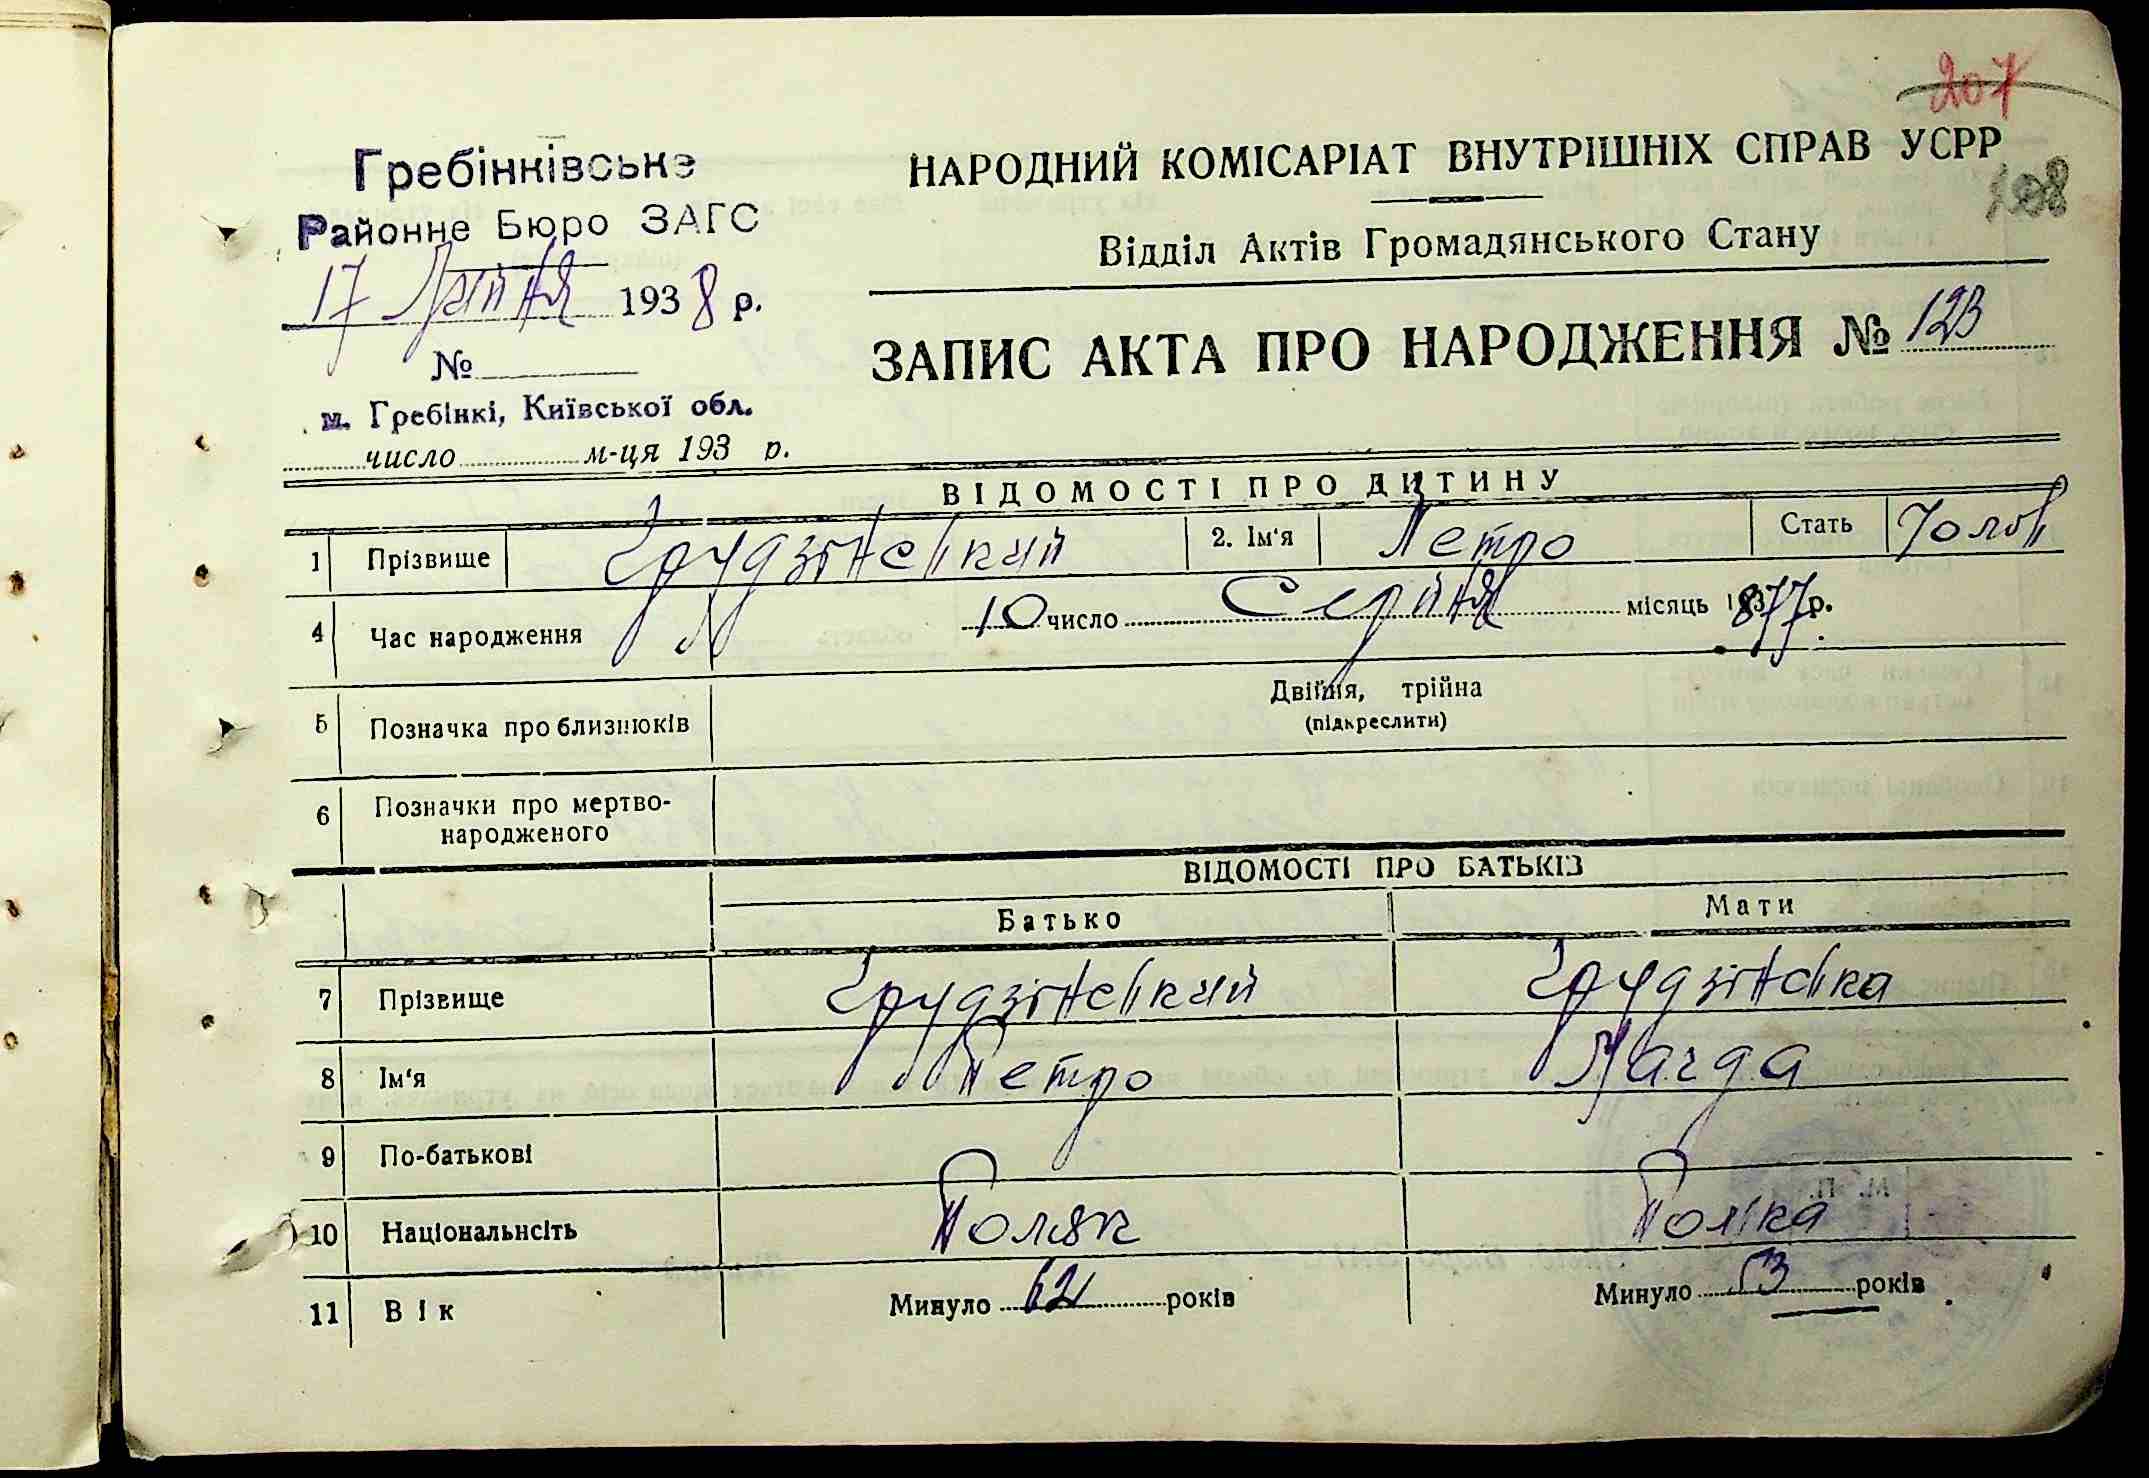 207
Гребінківське
Районне Бюро ЗАГС
17 Липня 1938 р.
№
м. Гребінкі, Київської обл.
число м-ця 193 р.
НАРОДНИЙ КОМІСАРІАТ ВНУТРІШНІХ СПРАВ УСРР
108
Відділ Актів Громадянського Стану
ЗАПИС АКТА ПРО НАРОДЖЕННЯ № 123
ВІДОМОСТІ ПРО ДИТИНУ
1 Прізвище Грудзінський 2. Ім'я Петро Стать Чолов
4 Час народження 10 число Серпня місяць 1877 р.
5 Позначка про близнюків Двійня, трійна
(підкреслити)
6 Позначки про мертво-
народженого
ВІДОМОСТІ ПРО БАТЬКІВ
Батько Мати
7 Прізвище Грудзінський Грудзінська
8 Ім'я Петро Магда
9 По-батькові
10 Національнсіть Поляк Полька
11 Вік Минуло 62 років Минуло 53 років
М. П.